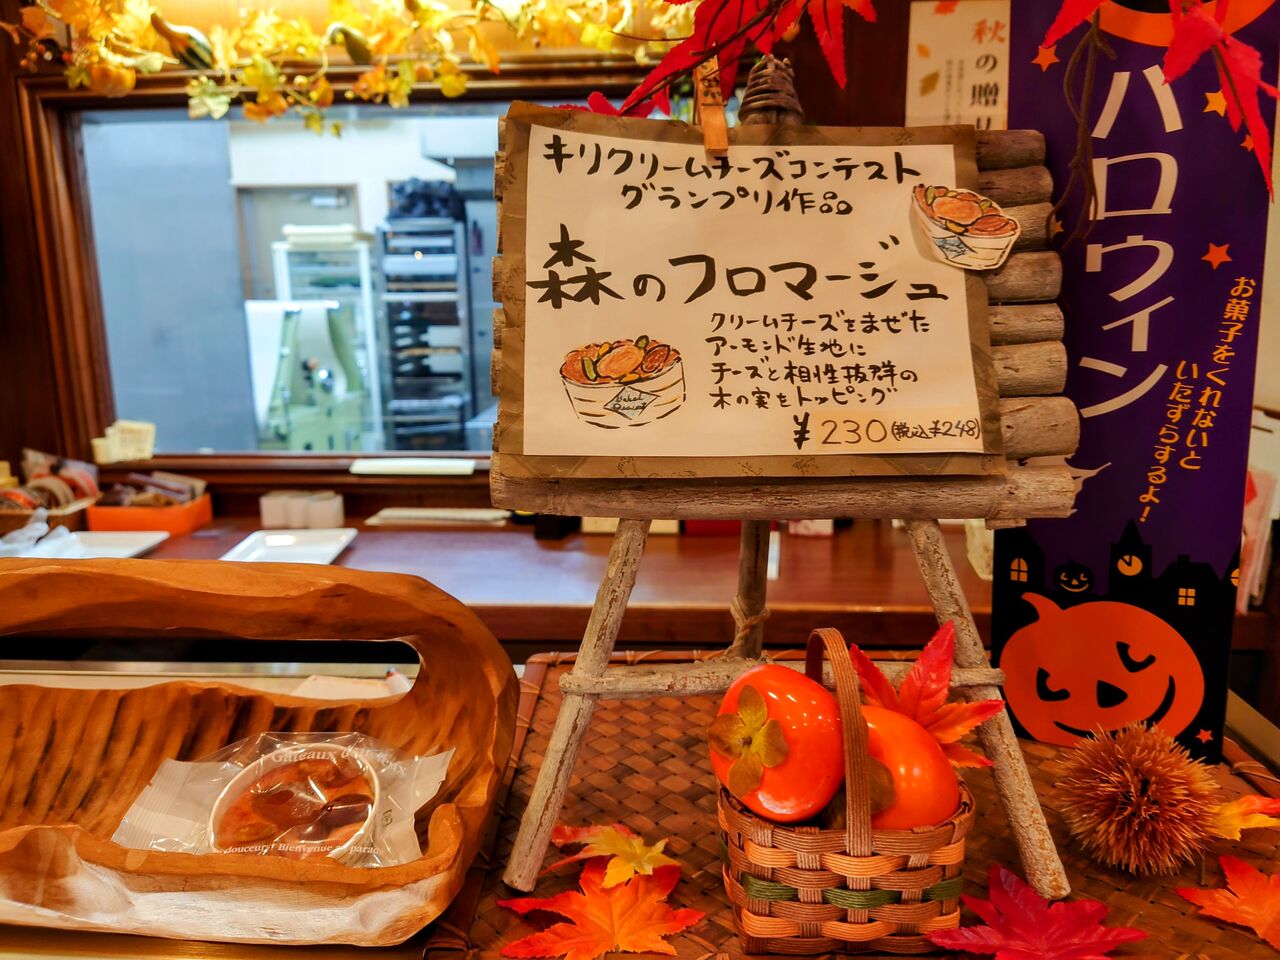 キリクリームチーズコンテスト
グランプリ作品
森のフロマージュ
クリームチーズをまぜた
アーモンド生地に
チーズと相性抜群の
木の実をトッピング
¥230(税込¥248)
秋の贈り
ハロウィン
お菓子をくれないと
いたずらするよ!
Gâteaux d
douceurs! Bienvenue au parad